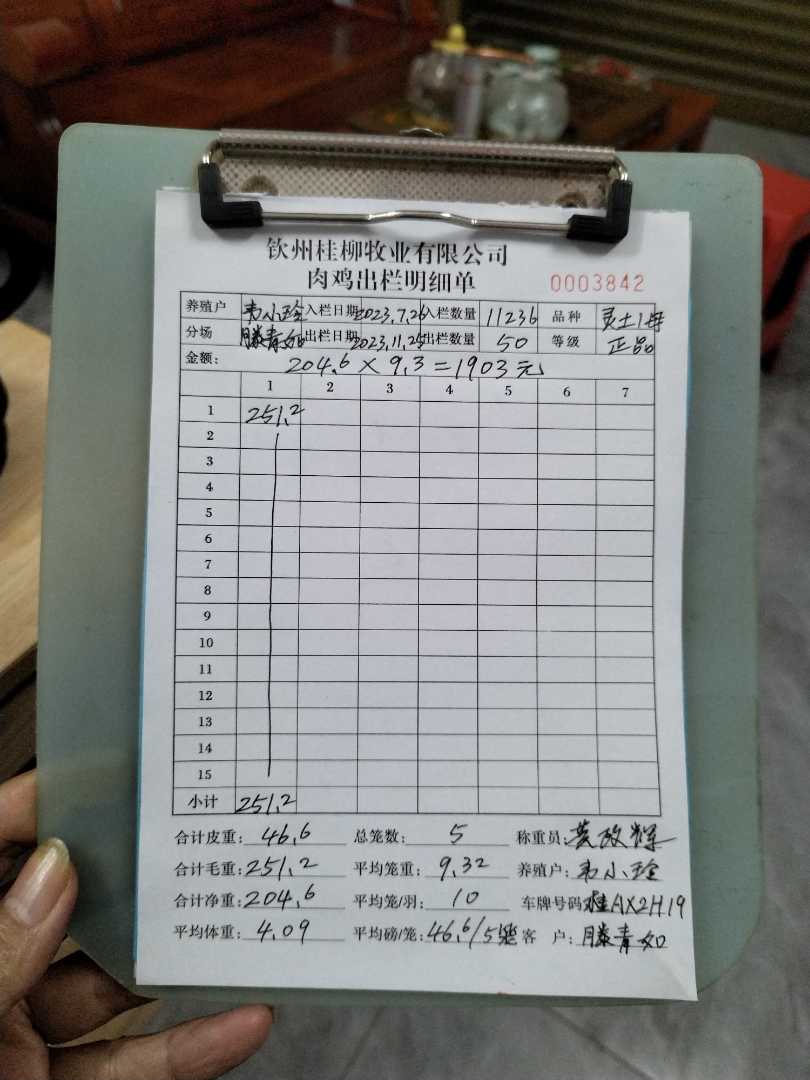 钦州桂柳牧业有限公司
肉鸡出栏明细单 0003842
养殖户 韦小玲 入栏日期 2023.7.26 入栏数量 11236 品种 灵土1母
分场 滕青如 出栏日期 2023.11.25 出栏数量 50 等级 正品
金额: 204.6×9.3=1903元
1 2 3 4 5 6 7
1 251.2
2
3
4
5
6
7
8
9
10
11
12
13
14
15
小计 251.2
合计皮重: 46.6 总笼数: 5 称重员: 黄政辉
合计毛重: 251.2 平均笼重: 9.32 养殖户: 韦小玲
合计净重: 204.6 平均笼/羽: 10 车牌号码 桂AX2H19
平均体重: 4.09 平均磅/笼: 46.6/5笼 客户: 滕青如